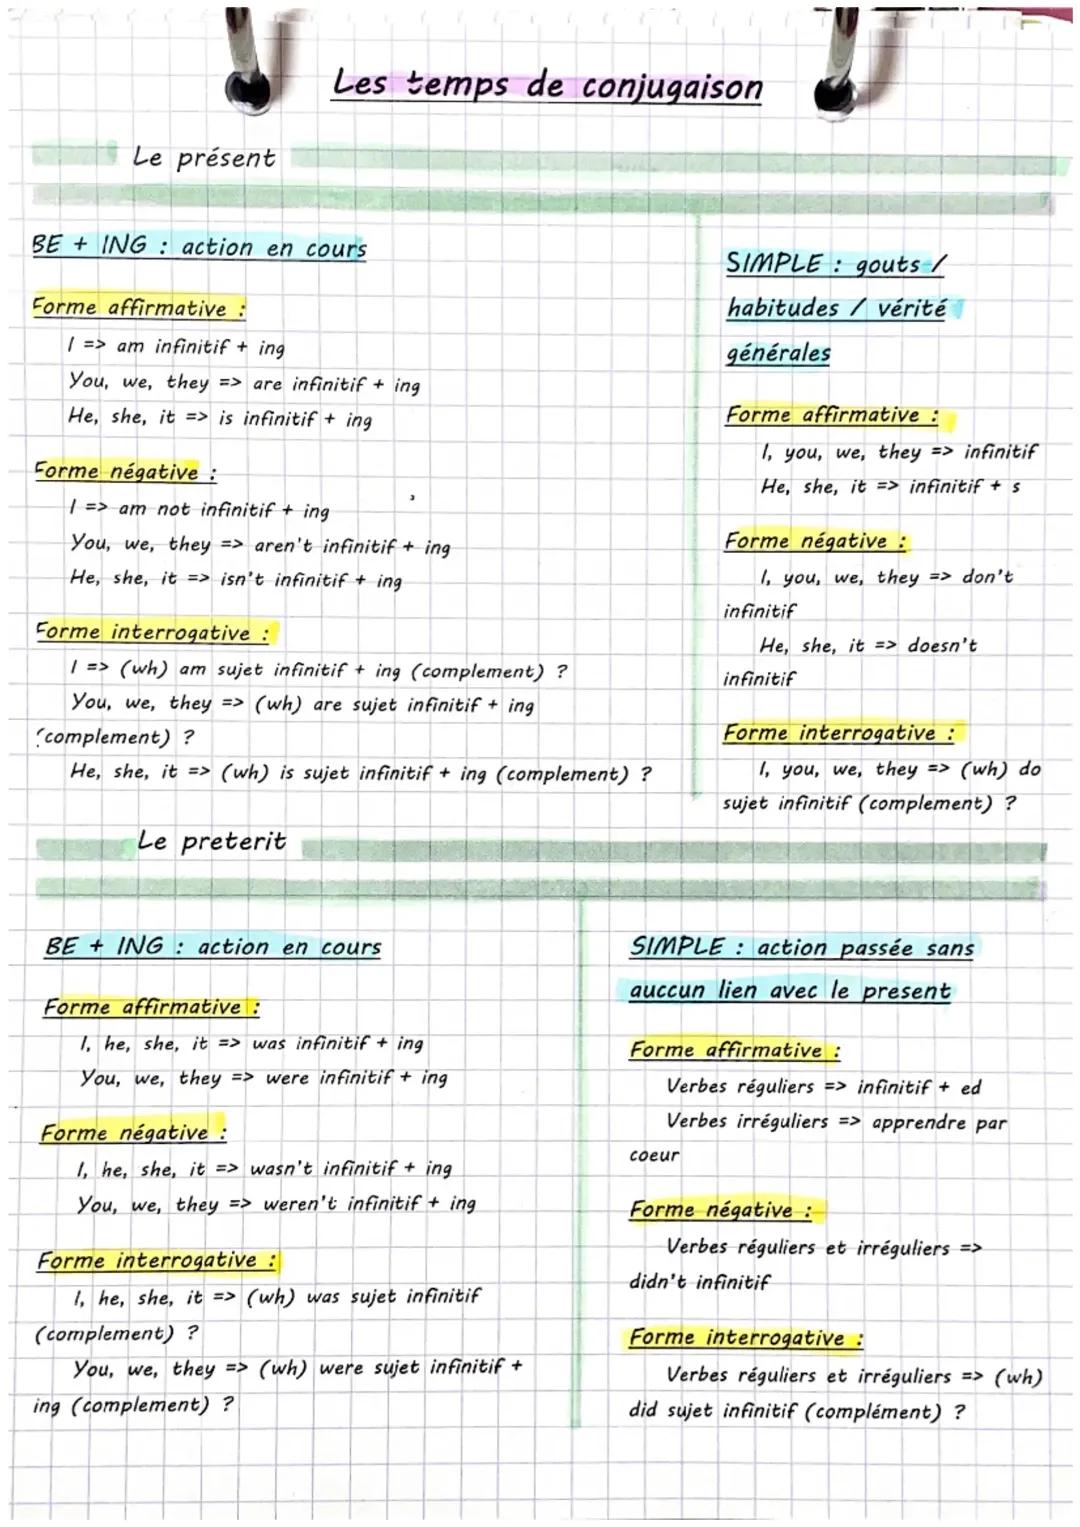 Les temps de conjugaison
Le présent
BE + ING : action en cours
Forme affirmative :
I => am infinitif + ing
You, we, they => are infinitif + ing
He, she, it => is infinitif + ing
Forme négative :
I => am not infinitif + ing
You, we, they => aren't infinitif + ing
He, she, it => isn't infinitif + ing
Forme interrogative :
I => (wh) am sujet infinitif + ing (complement) ?
You, we, they => (wh) are sujet infinitif + ing
(complement) ?
He, she, it => (wh) is sujet infinitif + ing (complement) ?
SIMPLE : gouts /
habitudes / vérité
générales
Forme affirmative :
I, you, we, they => infinitif
He, she, it => infinitif + s
Forme négative :
I, you, we, they => don't
infinitif
He, she, it => doesn't
infinitif
Forme interrogative :
I, you, we, they => (wh) do
sujet infinitif (complement) ?
Le preterit
BE + ING : action en cours
Forme affirmative :
I, he, she, it => was infinitif + ing
You, we, they => were infinitif + ing
Forme négative :
I, he, she, it => wasn't infinitif + ing
You, we, they => weren't infinitif + ing
Forme interrogative :
I, he, she, it => (wh) was sujet infinitif
(complement) ?
You, we, they => (wh) were sujet infinitif +
ing (complement) ?
SIMPLE : action passée sans
auccun lien avec le present
Forme affirmative :
Verbes réguliers => infinitif + ed
Verbes irréguliers => apprendre par
coeur
Forme négative :
Verbes réguliers et irréguliers =>
didn't infinitif
Forme interrogative :
Verbes réguliers et irréguliers => (wh)
did sujet infinitif (complément) ?